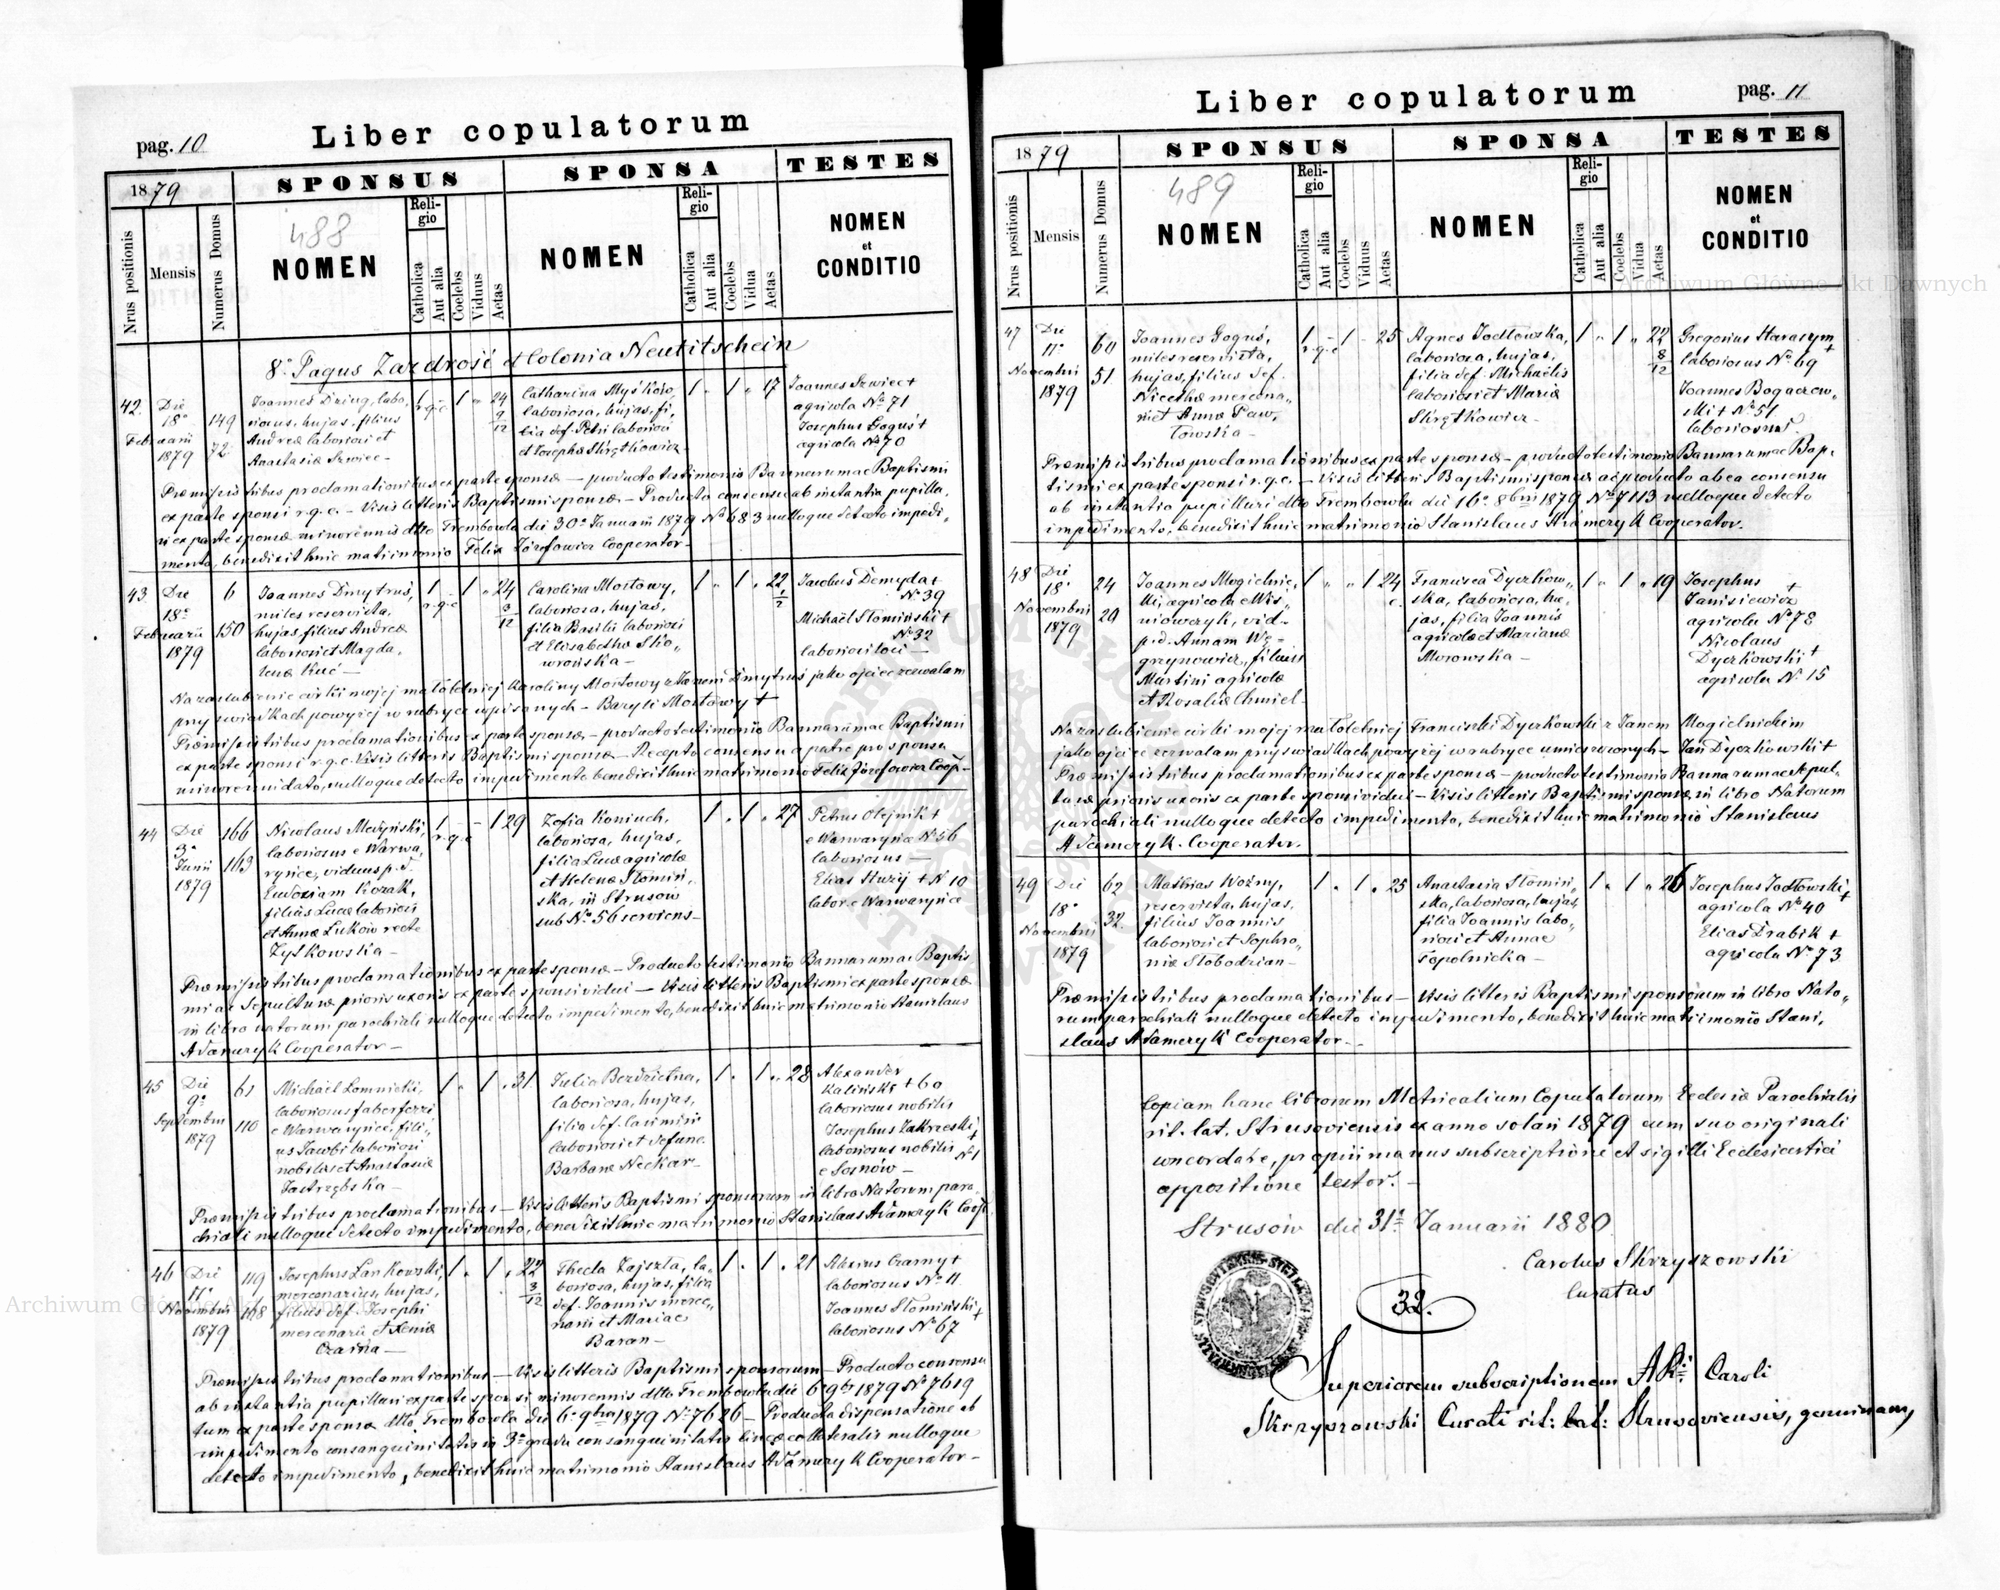 pag. 10
Liber copulatorum
1879
SPONSUS
SPONSA
TESTES
Nrus positionis
Mensis
Numerus Domus
488
NOMEN
Religio
Catholica
Aut alia
Coelebs
Viduus
Aetas
NOMEN
Religio
Catholica
Aut alia
Coelebs
Vidua
Aetas
NOMEN
et
CONDITIO
8o Pagus Zazdrość et Colonia Neutitschein
42.
Die
18a
Februarii
1879
149
72.
Joannes Dziug, labo,
riosus, hujas, filius
Andreæ laboriosi et
Anastasiæ Szwiec -
1 r.g.c. 1 24 9/12
Catharina Myśków,
laboriosa, hujas, fi,
lia def. Petri laboriosi
et Josephæ Skrętkowicz
1 1 17
Joannes Szwiec +
agricola No 71
Josephus Goguś +
agricola No 70
Præmissis tribus proclamationibus ex parte sponsæ - producto testimonio Bannorum ac Baptismi
ex parte sponsi r.g.c. - Visis litteris Baptismi sponsæ - Producto consensu ab instantia pupilla,
ri ex parte sponsæ minorennis dtto Trembowla die 30a Januarii 1879 No 683 nulloque detecto impedi,
mento, benedixit huic matrimonio Felix Józefowicz Cooperator -
43.
Die
18a
Februarii
1879
6
150
Joannes Dmytruś,
miles reservista,
hujas, filius Andreæ
laboriosi et Magda,
lenæ Kuć -
1 r.g.c 1 24 3/12
Carolina Mostowy,
laboriosa, hujas,
filia Basilii laboriosi
et Elisabethæ Sko,,
wrońska -
1 1 22 1/2
Jacobus Demyda +
No 39
Michaël Słomiński +
No 32
laboriosi loci -
Na zaślubienie córki mojej małoletniej Karoliny Mostowy z Janem Dmytruś jako ojciec zezwalam
przy świadkach powyżej w rubryce wpisanych - Bazyli Mostowy +
Præmissis tribus proclamationibus ex parte sponsæ - producto testimonio Bannorum ac Baptismi
ex parte sponsi r.g.c. Visis litteris Baptismi sponsæ - Recepto consensu a patre pro sponsa
minorenni dato, nulloque detecto impedimento benedixit huic matrimonio Felix Józefowicz Coop. -
44
Die
3a
Junii
1879
166
163
Nicolaus Medyński,
laboriosus e Warwa,
rynce, viduus p. d.
Eudoxiam Kozak,
filius Lucæ laboriosi
et Annæ Łuków recte
Zyskowska -
1 r.g.c 1 29
Zofia Koniuch,
laboriosa, hujas,
filia Lucæ agricolæ
et Helenæ Słomiń,
ska, in Strusów
sub No 56 serviens -
1 1 27
Petrus Olejnik +
e Warwaryńce No 56
laboriosus -
Elias Huzij + No 10
labor. e Warwaryńce
Præmissis tribus proclamationibus ex parte sponsæ - Producto testimonio Bannorum ac Baptis
mi ac Sepulturæ prioris uxoris ex parte sponsi vidui - Visis litteris Baptismi ex parte sponsæ
in libro natorum parochiali nulloque detecto impedimento, benedixit huic matrimonio Stanislaus
Adameryk Cooperator -
45
Die
9a
Septembris
1879
61
110
Michaël Łomnicki,
laboriosus faber ferri
e Warwaryńce, fili,
us Jacobi laboriosi
nobilis et Anastasiæ
Jastrzębska -
1 1 31
Julia Bezdzietna,
laboriosa, hujas,
filia def. Casimiri
laboriosi et defunc.
Barbaræ Neckar -
1 1 28
Alexander
Kaliński + 60
laboriosus nobilis
Josephus Zakrzeski +
laboriosus nobilis No 1
e Sosnów -
Præmissis tribus proclamationibus - Visis litteris Baptismi sponsorum in libro Natorum paro,
chiali nulloque detecto impedimento, benedixit huic matrimonio Stanislaus Adameryk Coop.
46
Die
11a
Novembris
1879
119
168
Josephus Lankowski,
mercenarius, hujas,
filius def. Josephi
mercenarii et Xeniæ
Czarna -
1 1 22 3/12
Thecla Zajszla, la,
boriosa, hujas, filia
def. Joannis merce,
narii et Mariae
Baran -
1 1 21
Czarny +
laboriosus No 11
Joannes Słomiński +
laboriosus No 67
Præmissis tribus proclamationibus - Visis litteris Baptismi sponsorum - Producto consensu
ab instantia pupillari ex parte sponsi minorennis dtto Trembowla die 6 9bris 1879 No 7619
tum ex parte sponsæ dtto Trembowla die 6a 9bris 1879 No 7626 - Producta dispensatione ab
impedimento consanguinitatis in 3o gradu consanguinitatis lineæ collateralis nulloque
detecto impedimento, benedixit huic matrimonio Stanislaus Adameryk Cooperator -
pag. 11
Liber copulatorum
1879
SPONSUS
SPONSA
TESTES
Nrus positionis
Mensis
Numerus Domus
489
NOMEN
Religio
Catholica
Aut alia
Coelebs
Viduus
Aetas
NOMEN
Religio
Catholica
Aut alia
Coelebs
Vidua
Aetas
NOMEN
et
CONDITIO
47
Die
11a
Novembri
1879
60
51.
Joannes Goguś,
miles reservista,
hujas, filius def.
Nicethæ mercena,
rii et Annæ Paw,
łowska -
1 r.g.c 1 25
Agnes Jodłowska,
laboriosa, hujas,
filia def. Michaëlis
laboriosi et Mariæ
Skrętkowicz -
1 1 22 8/12
Gregorius Harasym +
laboriosus No 69
Joannes Bogaczew,,
ski + No 51
laboriosus
Præmissis tribus proclamationibus ex parte sponsæ - producto testimonio Bannorum ac Bap,
tismi ex parte sponsi r.g.c. - Visis litteris Baptismi sponsæ ac producto ab ea consensu
ab instantia pupillari dtto Trembowla die 16a 8bris 1879 No 7113 nulloque detecto
impedimento, benedixit huic matrimonio Stanislaus Adameryk Cooperator.
48
Die
18a
Novembri
1879
24
20
Joannes Mogielnic,
ki, agricola e Wis,,
niowczyk, vid-
p. d. Annam We=
grzynowicz, filius
Martini agricolæ
et Rosaliæ Chmiel -
1 1 24
Francisca Dyczkow,,
ska, laboriosa, hu,
jas, filia Joannis
agricolæ et Marianæ
Morowska -
1 1 19
Josephus +
Janisiewicz
agricola No 78
Nicolaus
Dyczkowski +
agricola No 15
Na zaślubienie córki mojej małoletniej Franciszki Dyczkowski z Janem Mogielnickim
jako ojciec zezwalam przy świadkach powyżej w rubryce umieszczonych - Jan Dyczkowski +
Præmissis tribus proclamationibus ex parte sponsæ - producto testimonio Bannorum ac Sepul,
turæ prioris uxoris ex parte sponsi vidui - Visis litteris Baptismi sponsæ in libro Natorum
parochiali nulloque detecto impedimento, benedixit huic matrimonio Stanislaus
Adameryk. Cooperator.
49
Die
18a
Novembri
1879
62
32.
Mathias Woźny,
reservista, hujas,
filius Joannis
laboriosi et Sophro,
niæ Słobodzian -
1 1 25
Anastasia Słomiń,
ska, laboriosa, hujas,
filia Joannis labo,
riosi et Annae
Sopolnicka -
1 1 26
Josephus Jodłowski +
agricola No 40
Elias Drabik +
agricola No 73
Præmissis tribus proclamationibus - Visis litteris Baptismi sponsorum in libro Nato,,
rum parochiali nulloque detecto impedimento, benedixit huic matrimonio Stani,
slaus Adameryk Cooperator -
Copiam hanc librorum Metricalium Copulatorum Ecclesiæ Parochialis
rit. lat. Strusoviensis ex anno solari 1879 cum suo originali
concordare, propriimanus subscriptione et sigilli Ecclesiastici
appositione testor. -
Strusów die 31a Januarii 1880
Carolus Skrzyszowski
Curatus
32.
Superiorem subscriptionem ARi Caroli
Skrzyszowski Curati rit: lat: Strusoviensis, genuinam,
Archiwum Główne Akt Dawnych
Archiwum Główne Akt Dawnych